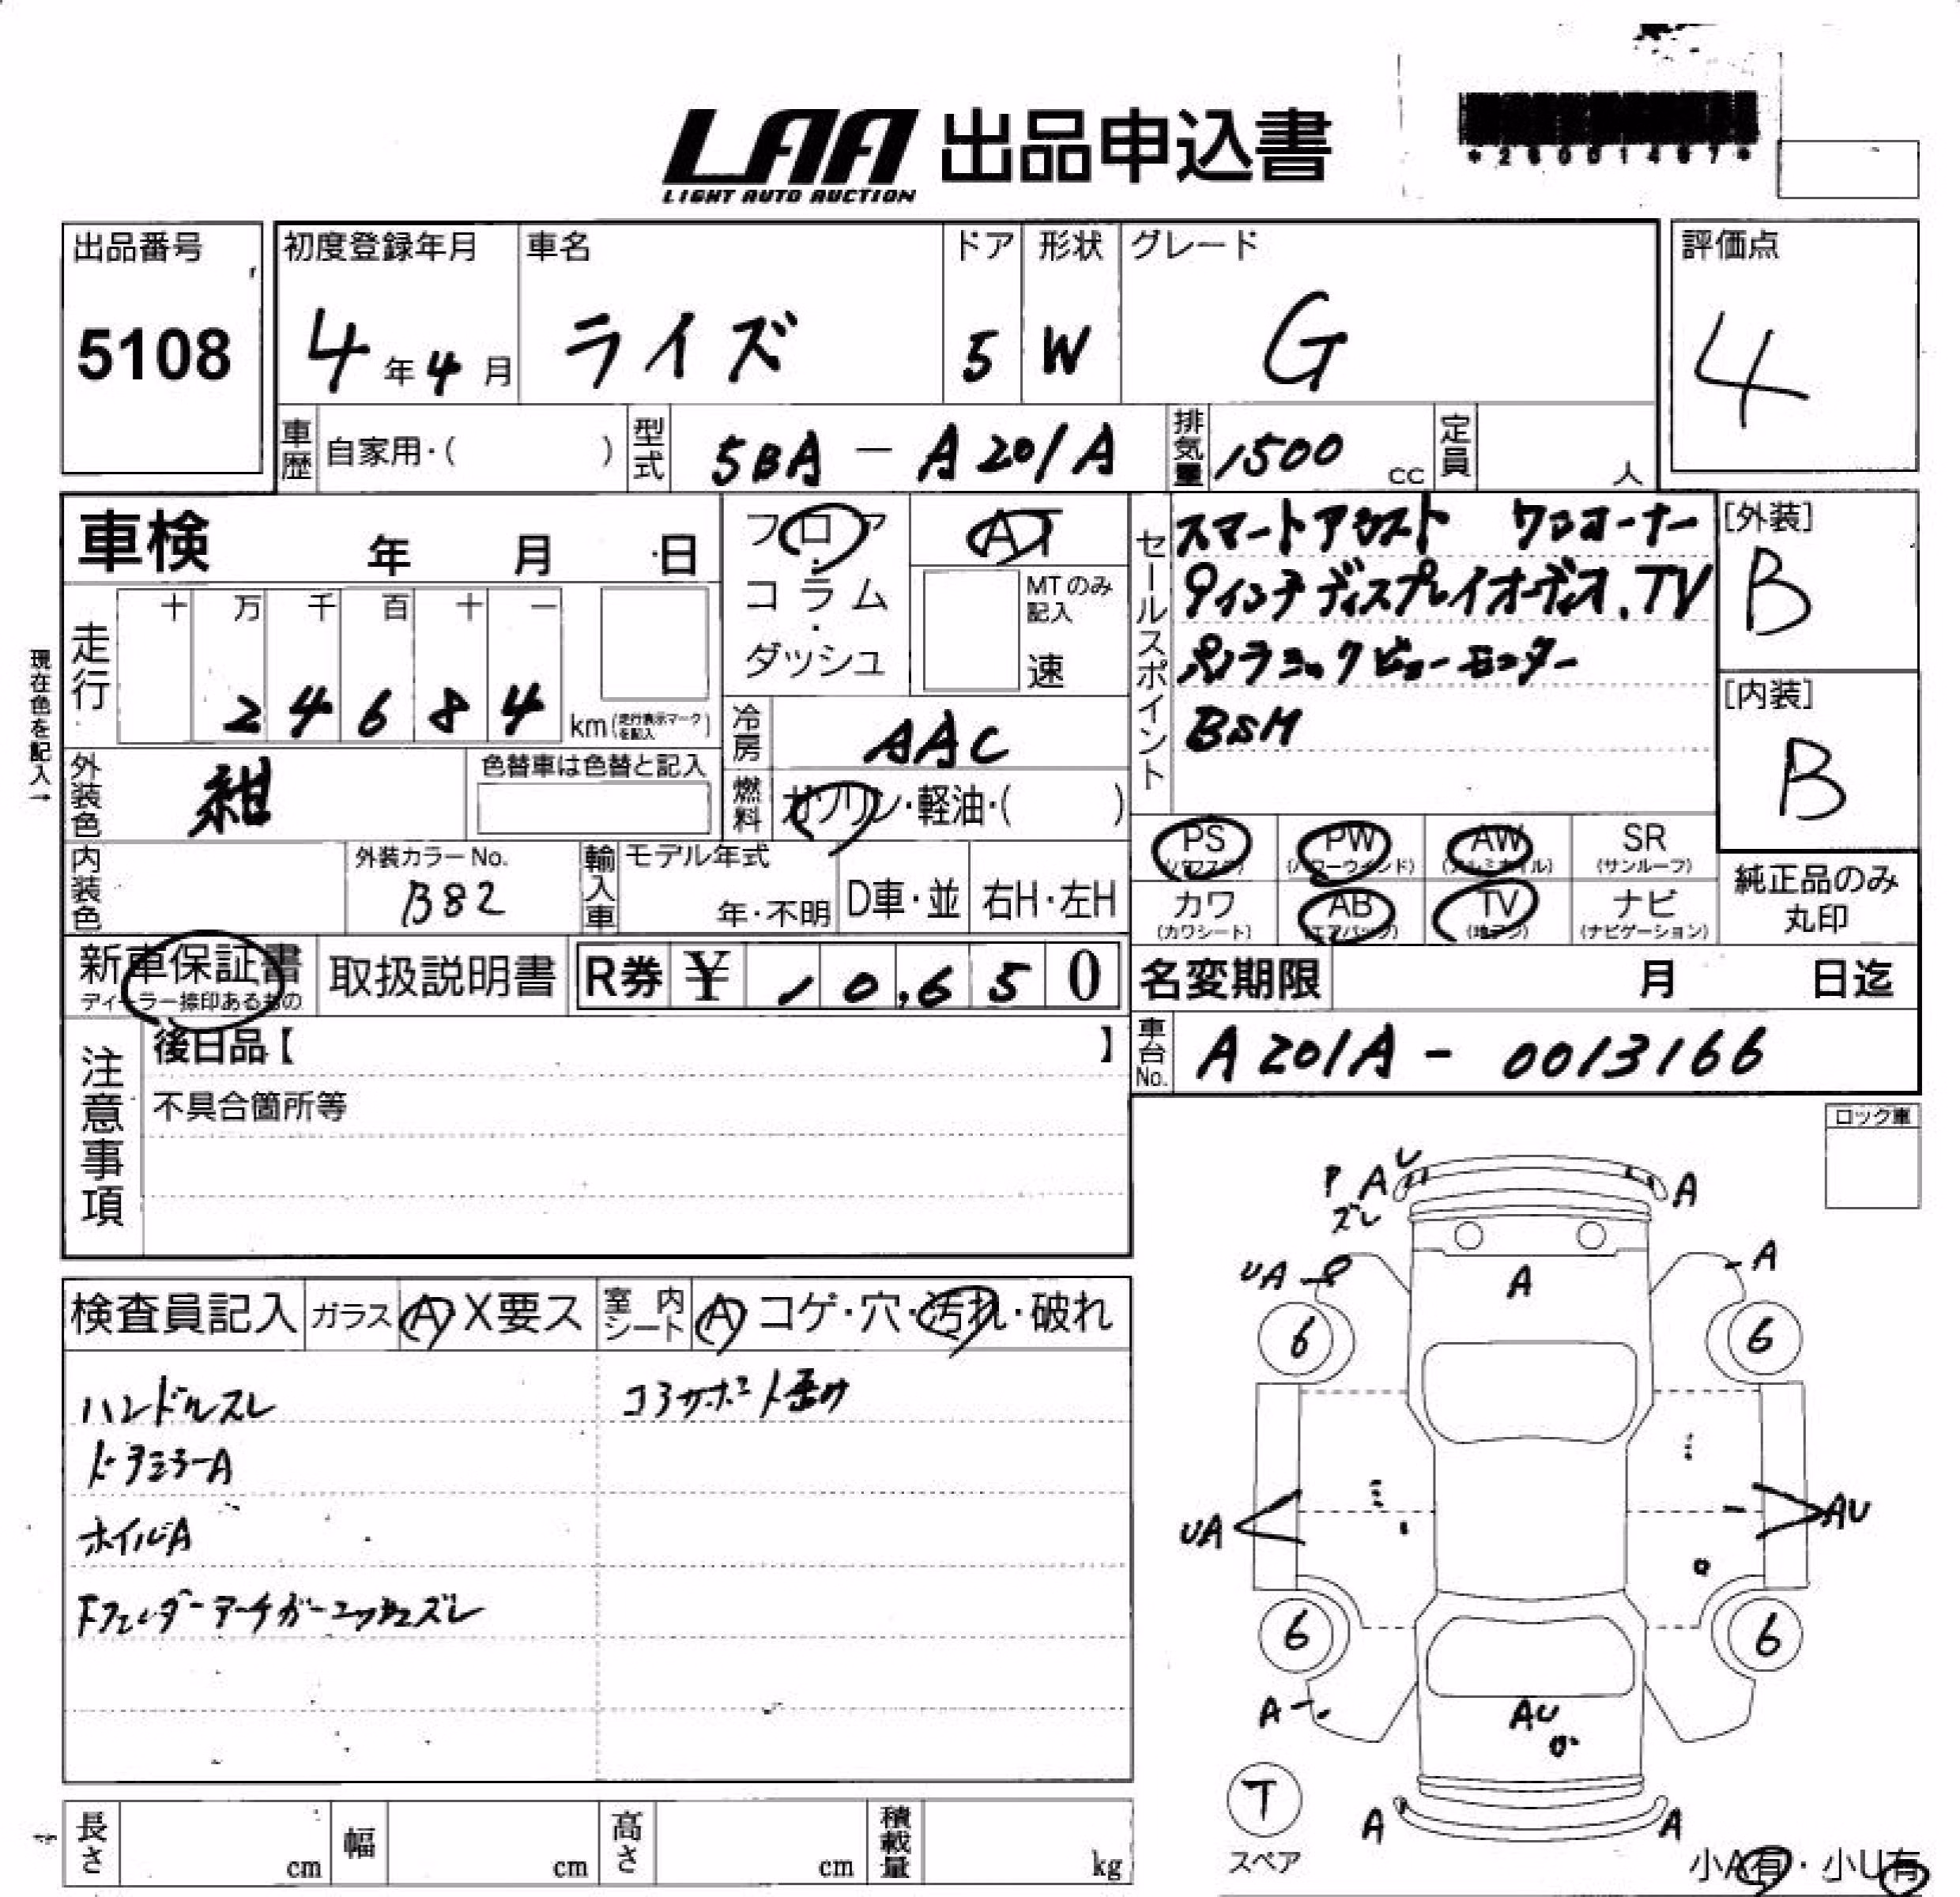 LAA 出品申込書
LIGHT AUTO AUCTION
出品番号
5108
初度登録年月
4年4月
車名
ライズ
ドア
5
形状
W
グレード
G
評価点
4
車歴 自家用・( )
型式 5BA - A201A
排気量 1500 cc
定員 人
車検 年 月 日
現在色を記入→
走行
十 万 千 百 十 一
2 4 6 8 4 km (走行表示マークを記入)
フロア・コラム・ダッシュ
AT
MTのみ記入
速
冷房 AAC
燃料 ガソリン・軽油・( )
外装色 紺
色替車は色替と記入
内装色
外装カラーNo.
B82
輸入車 モデル年式
年・不明
D車・並
右H・左H
セールスポイント
スマートアシスト ワンオーナー
9インチディスプレイオーディオ、TV
パノラミックビューモニター
BSM
[外装]
B
[内装]
B
PS (パワステ)
PW (パワーウインド)
AW (アルミホイル)
SR (サンルーフ)
カワ (カワシート)
AB (エアバッグ)
TV (地デジ)
ナビ (ナビゲーション)
純正品のみ丸印
新車保証書
ディーラー捺印あるもの
取扱説明書
R券 ¥ 10,650
名変期限 月 日迄
車台No. A201A - 0013166
注意事項
後日品【 】
不具合箇所等
ロック車
検査員記入
ガラス A X要ス
室内シート A コゲ・穴・汚れ・破れ
ハンドルスレ
ドアミラーA
ホイルA
Fフェンダーアーチガーニッシュズレ
P A
A
ズレ
UA
A
A
6
6
UA
AU
6
6
A
AU
T
スペア
A
A
小A有・小U有
長さ cm
幅 cm
高さ cm
積載量 kg